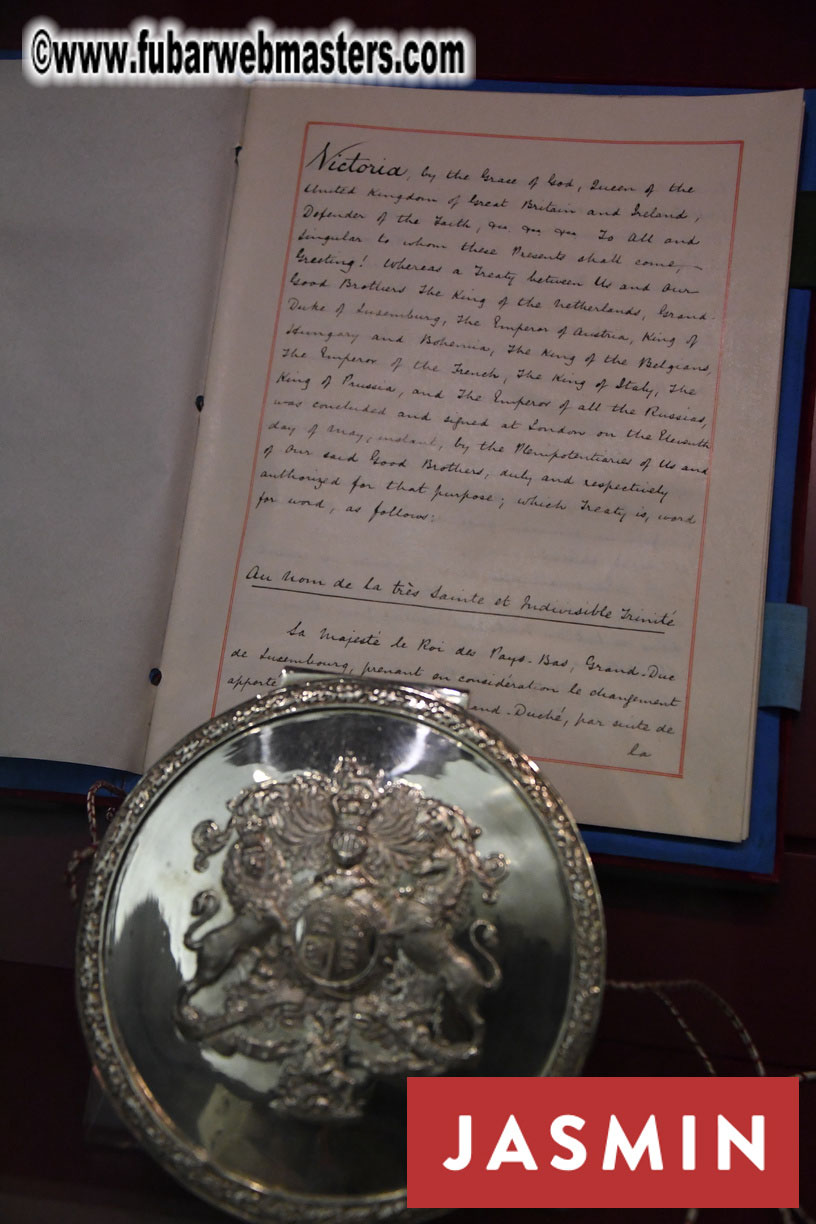 ©www.fubarwebmasters.com
Victoria, by the Grace of God, Queen of the
United Kingdom of Great Britain and Ireland,
Defender of the Faith, &c. &c. &c. To All and
Singular to whom these Presents shall come, –
Greeting! Whereas a Treaty between Us and Our
Good Brothers The King of the Netherlands, Grand-
Duke of Luxemburg, The Emperor of Austria, King of
Hungary and Bohemia, The King of the Belgians,
The Emperor of the French, The King of Italy, The
King of Prussia, and The Emperor of all the Russias,
was concluded and signed at London on the Eleventh
day of May, instant, by the Plenipotentiaries of Us and
of Our said Good Brothers, duly and respectively
authorized for that purpose; which Treaty is, word
for word, as follows:
Au Nom de la très Sainte et Indivisible Trinité
Sa Majesté le Roi des Pays-Bas, Grand-Duc
de Luxembourg, prenant en considération le changement
apporté and-Duché, par suite de
la
JASMIN